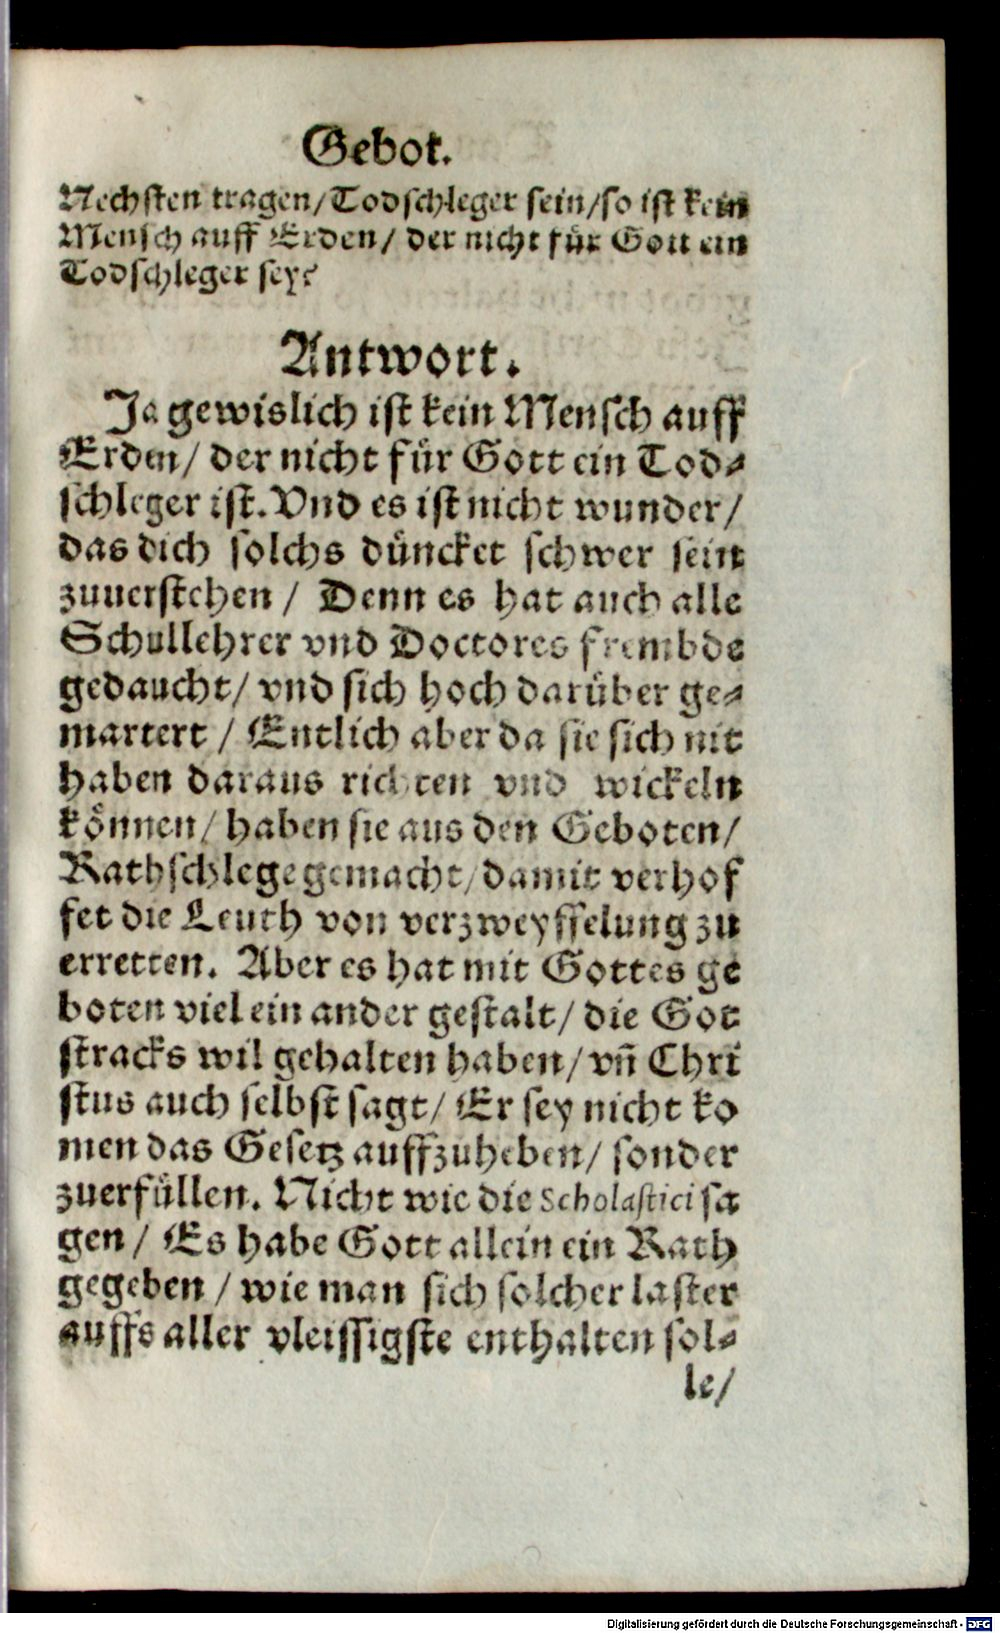 Gebot.
Nechsten tragen/Todschleger sein/so ist kein
Mensch auff Erden/ der nicht für Gott ein
Todschleger sey?
Antwort.
Ja gewislich ist kein Mensch auff
Erden/ der nicht für Gott ein Tod⸗
schleger ist. Vnd es ist nicht wunder/
das dich solchs düncket schwer sein
zuuerstehen / Denn es hat auch alle
Schullehrer vnd Doctores frembde
gedaucht/ vnd sich hoch darüber ge⸗
martert / Entlich aber da sie sich nit
haben daraus richten vnd wickeln
können/ haben sie aus den Geboten/
Rathschlege gemacht/ damit verhof
fet die Leuth von verzweyffelung zu
erretten. Aber es hat mit Gottes ge
boten viel ein ander gestalt/ die Got
stracks wil gehalten haben/ vñ Chri
stus auch selbst sagt/ Er sey nicht ko
men das Gesetz auffzuheben/ sonder
zuerfüllen. Nicht wie die Scholastici sa
gen/ Es habe Gott allein ein Rath
gegeben / wie man sich solcher laster
auffs aller vleissigste enthalten sol⸗
le/
Digitalisierung gefördert durch die Deutsche Forschungsgemeinschaft - DFG